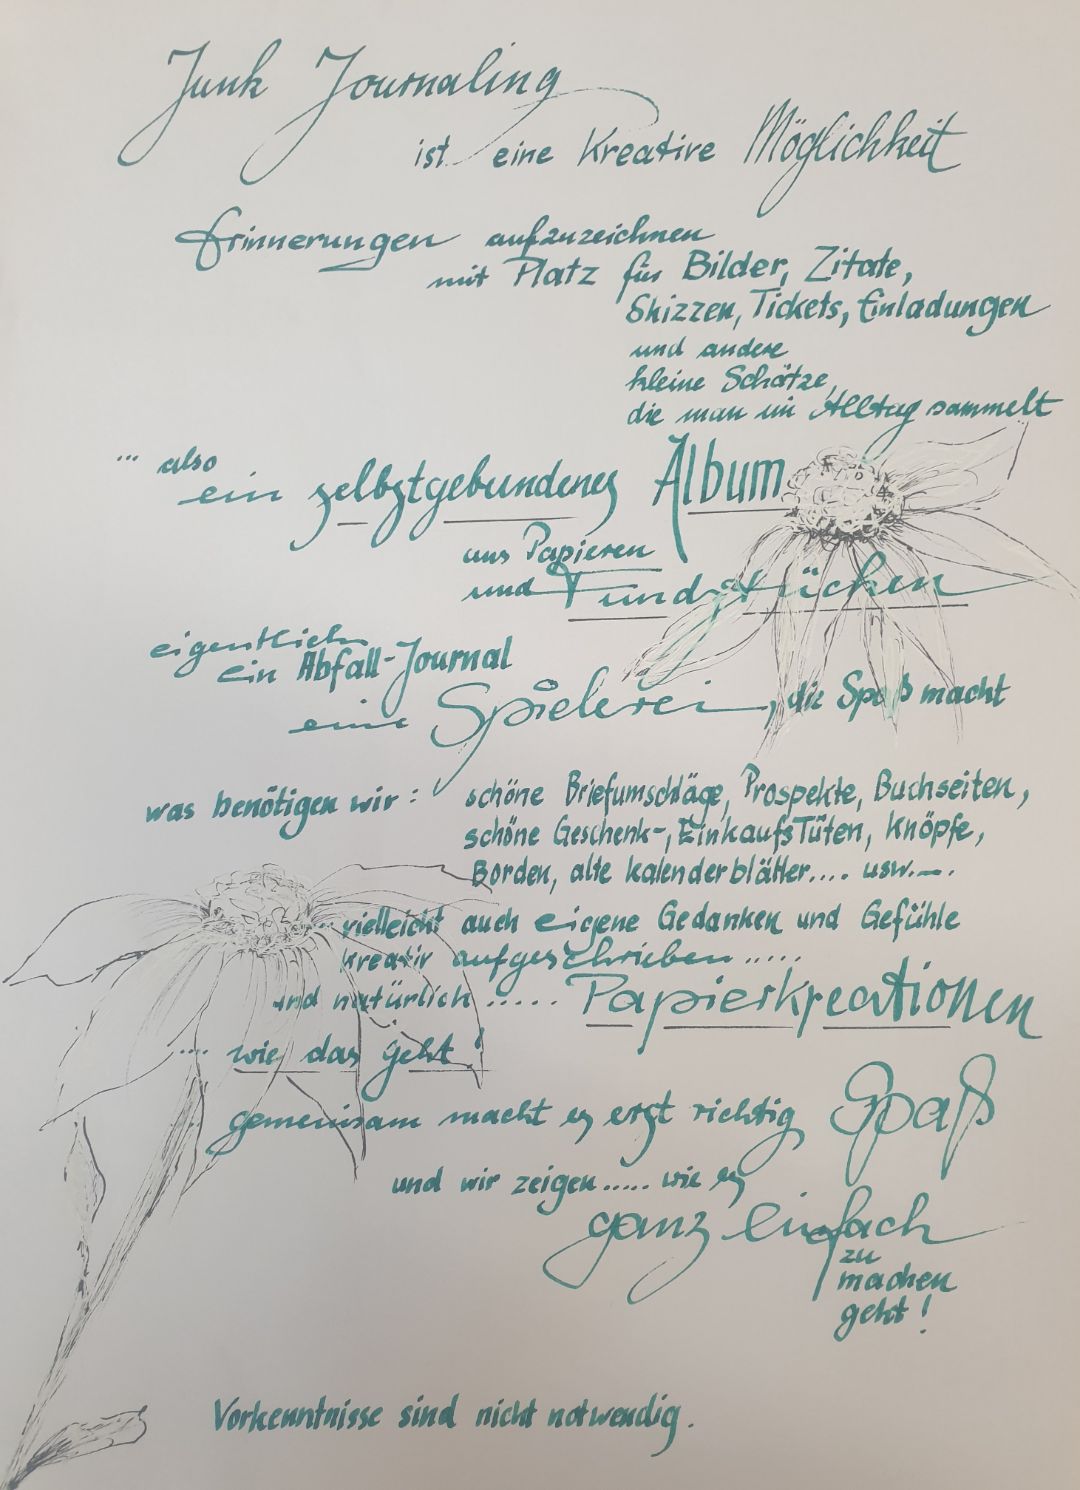 Junk Journaling
ist eine kreative Möglichkeit
Erinnerungen aufzuzeichnen
mit Platz für Bilder, Zitate,
Skizzen, Tickets, Einladungen
und andere
kleine Schätze,
die man im Alltag sammelt
... also
ein selbstgebundenes Album
aus Papieren
und Fundstücken
eigentlich
ein Abfall-Journal
eine Spielerei, die Spaß macht
was benötigen wir: schöne Briefumschläge, Prospekte, Buchseiten,
schöne Geschenk-, EinkaufsTüten, Knöpfe,
Borden, alte Kalenderblätter.... usw.—.
... vielleicht auch eigene Gedanken und Gefühle
kreativ aufgeschrieben.....
und natürlich ..... Papierkreationen
.... wie das geht!
gemeinsam macht es erst richtig Spaß
und wir zeigen..... wie es
ganz einfach
zu
machen
geht!
Vorkenntnisse sind nicht notwendig.